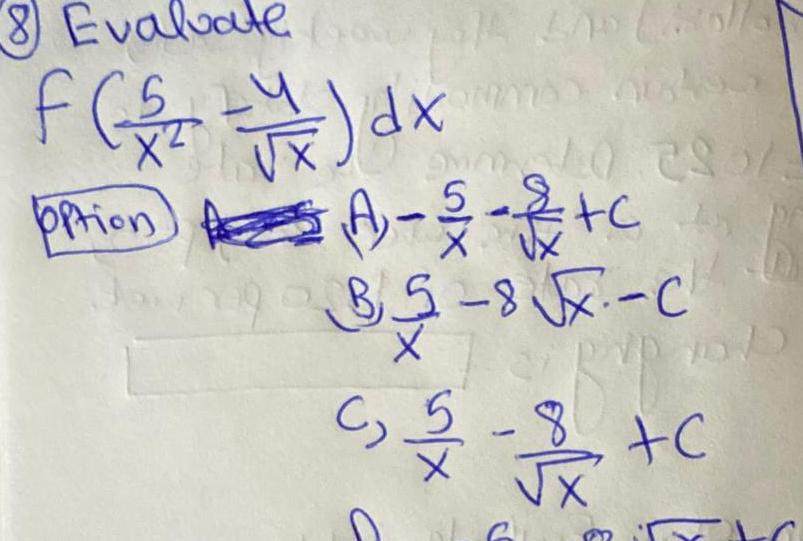 8 Evaluate
f(5/x² - 4/√x) dx
option A) - 5/x - 8/√x + C
B) 5/x - 8√x - C
C, 5/x - 8/√x + C